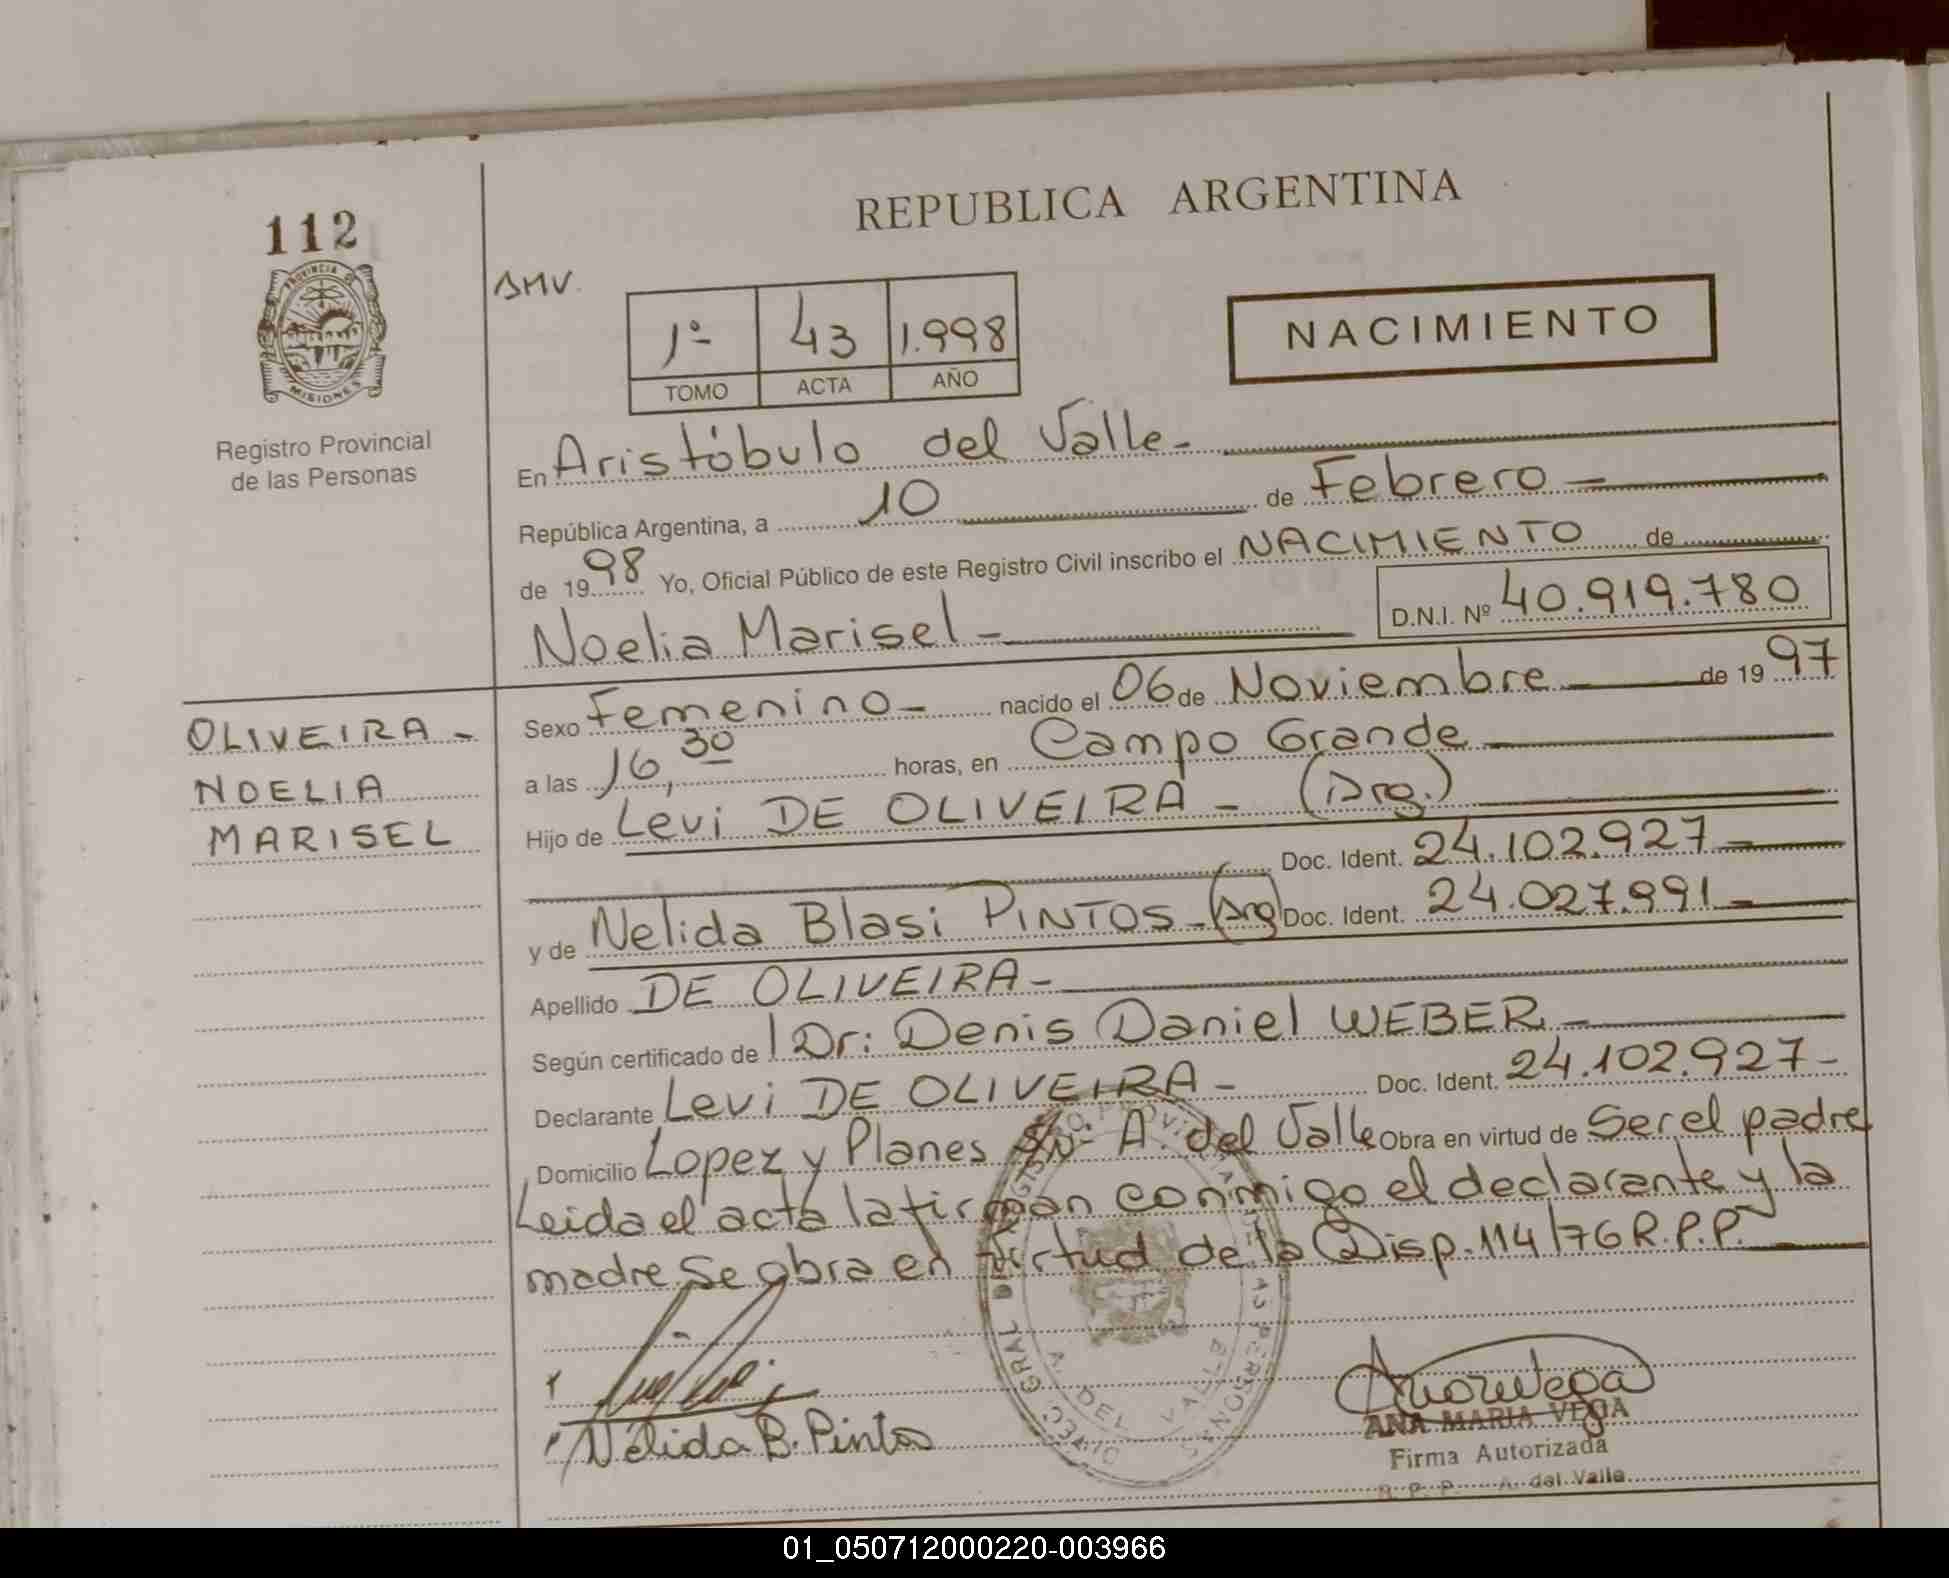 REPUBLICA ARGENTINA
112
PROVINCIA DE
MISIONES
Registro Provincial
de las Personas
1º 43 1.998
TOMO ACTA AÑO
NACIMIENTO
En Aristóbulo del Valle-
República Argentina, a 10 de Febrero
de 1998 Yo, Oficial Público de este Registro Civil inscribo el NACIMIENTO de
Noelia Marisel- D.N.I. Nº 40.919.780
Sexo Femenino- nacido el 06 de Noviembre de 1997
OLIVEIRA-
NOELIA
MARISEL
a las 16,30 horas, en Campo Grande
Hijo de Levi DE OLIVEIRA- (Arg.)
Doc. Ident. 24.102.927-
y de Nelida Blasi PINTOS-(Arg) Doc. Ident. 24.027.991-
Apellido DE OLIVEIRA-
Según certificado de Dr: Denis Daniel WEBER-
Declarante Levi DE OLIVEIRA- Doc. Ident. 24.102.927-
Domicilio Lopez y Planes S/Nº A. del Valle Obra en virtud de Ser el padre
Leida el acta la firman conmigo el declarante y la
madre. Se obra en virtud de la Disp. 114/76 R.P.P.
A. DEL VALLE
Nélida B. Pintos
ANA MARIA VEGA
Firma Autorizada
R. P. P. A. del Valle
01_050712000220-003966